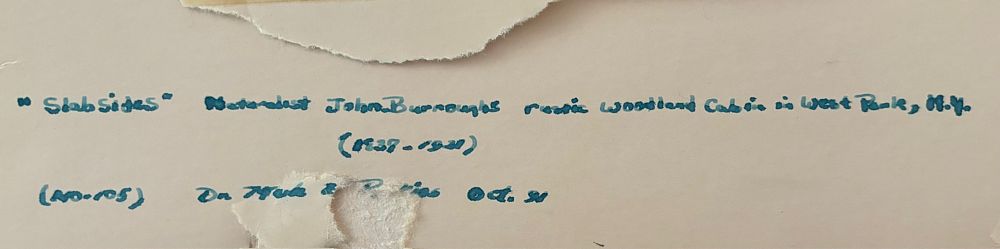 "Slabsides" Naturalist John Burroughs rustic woodland Cabin in West Park, N.Y.
(1837-1921)
(NO-105) Dr. Oct.